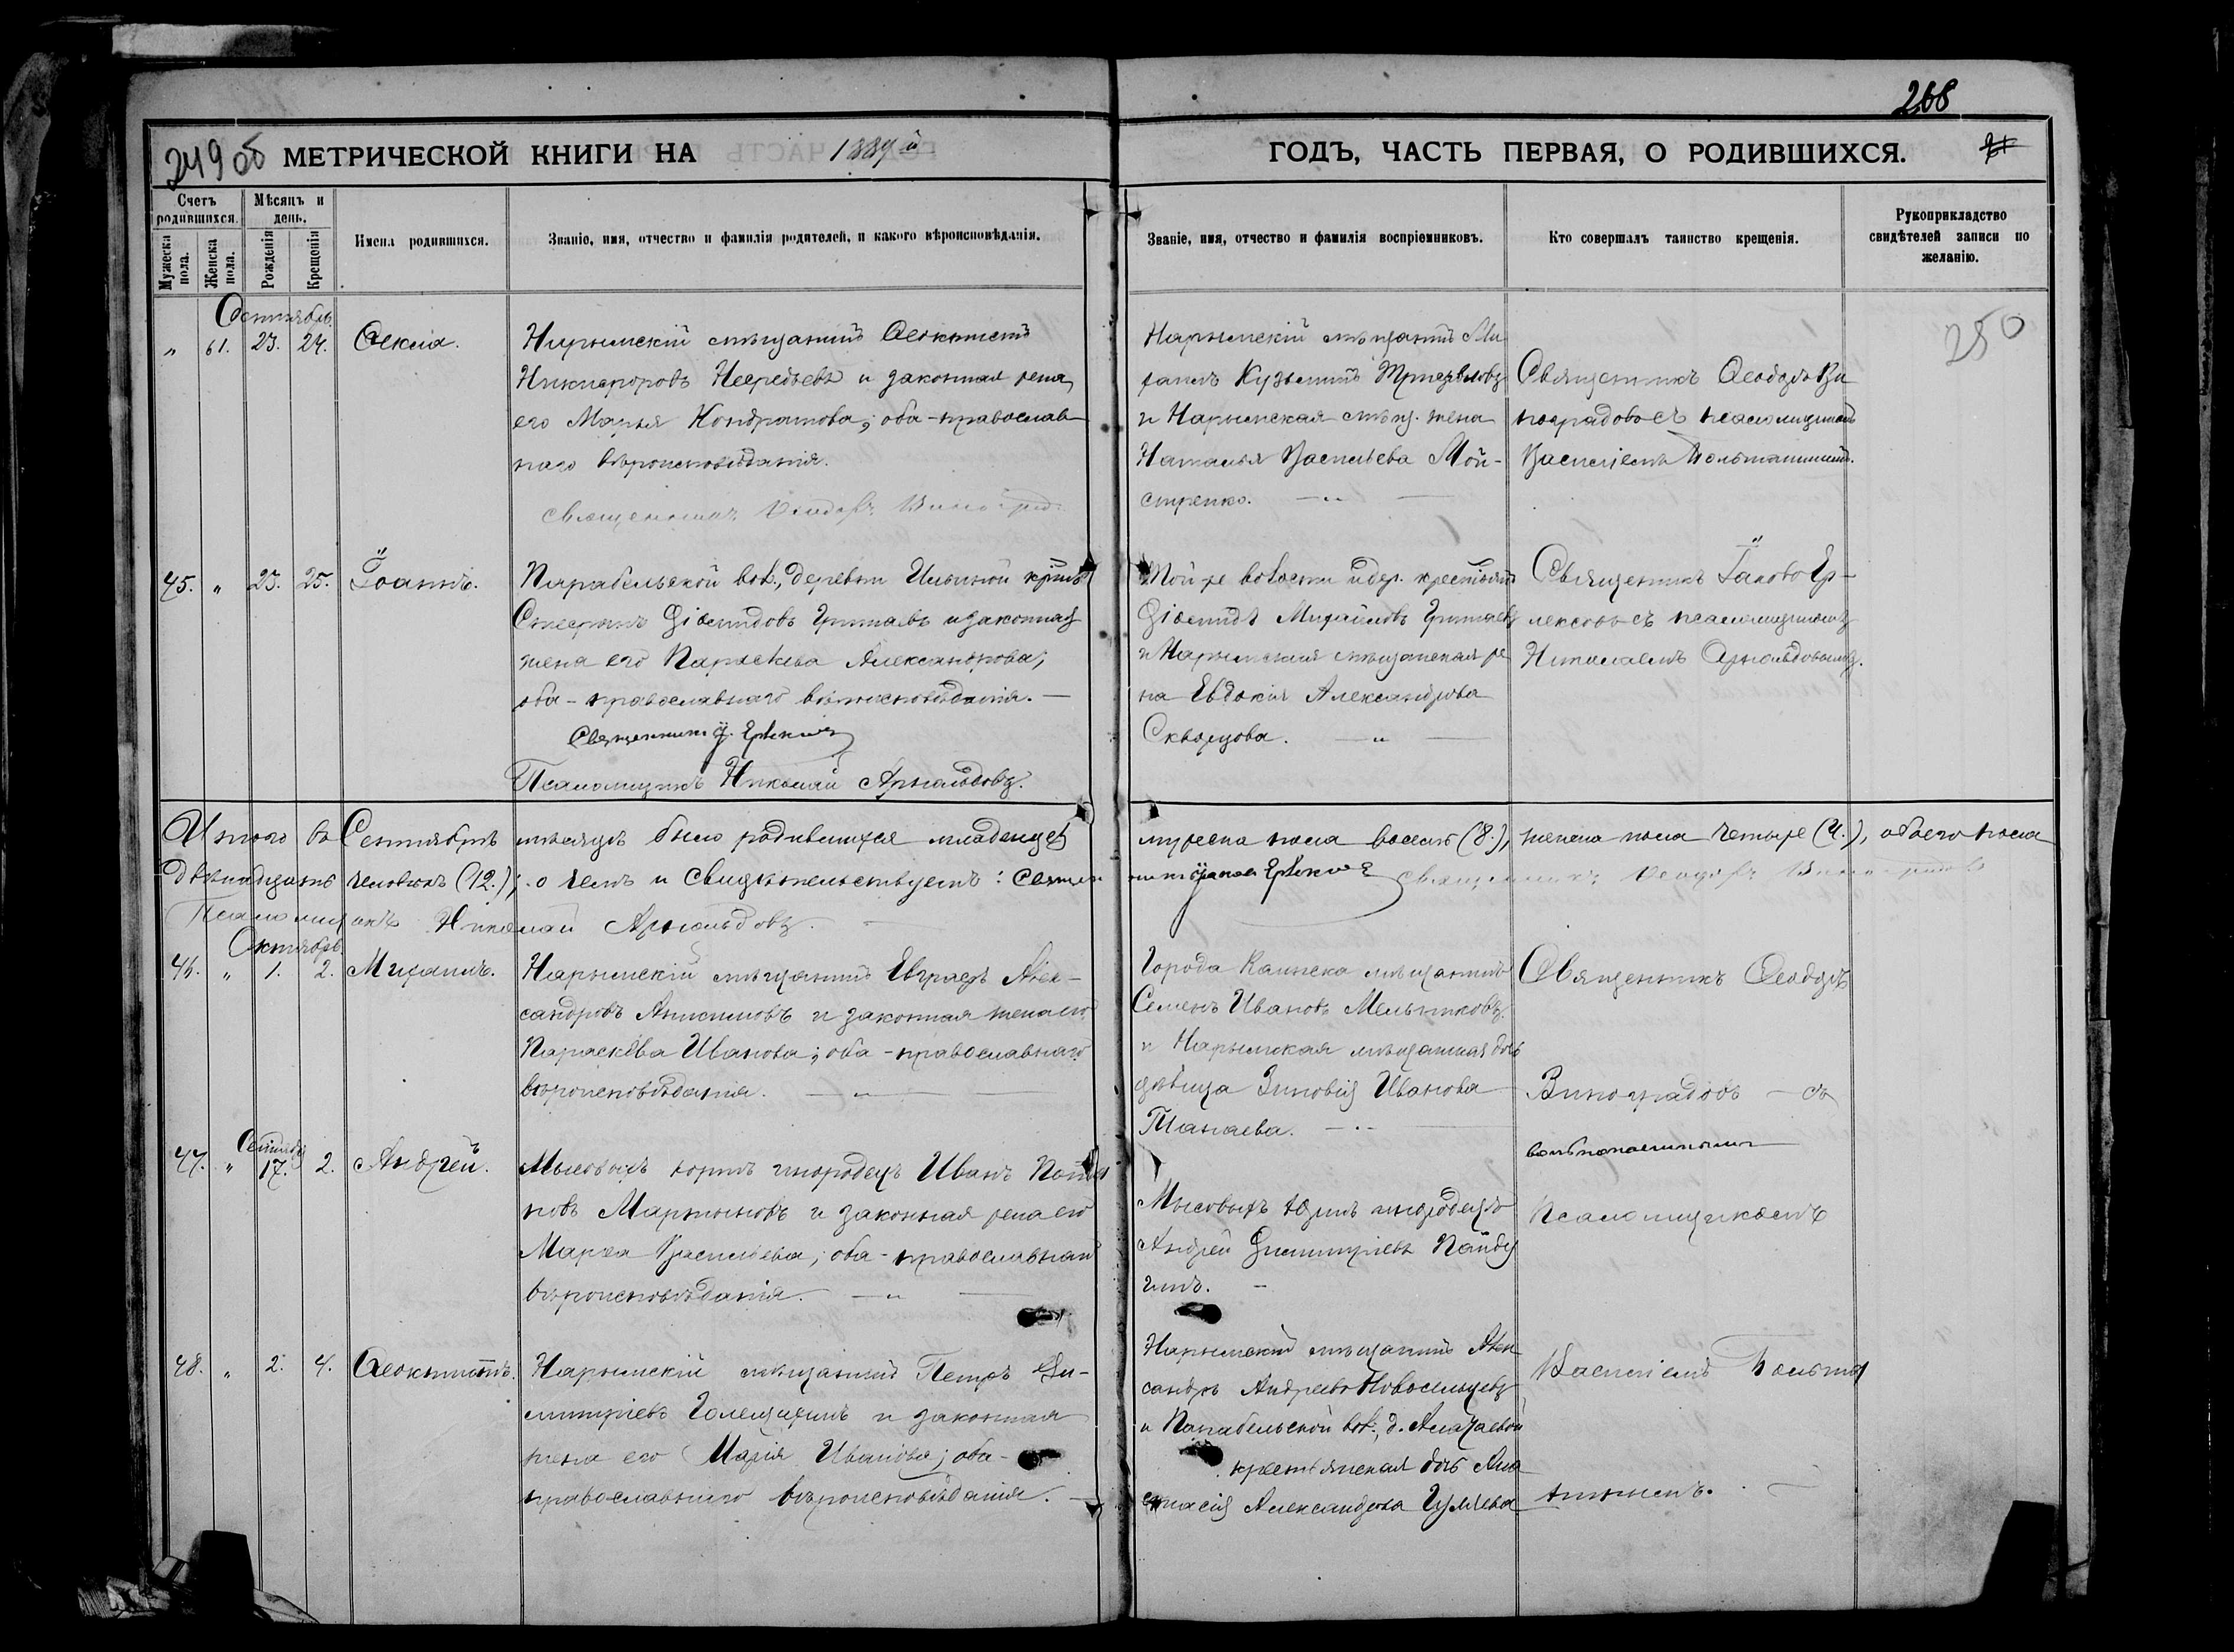 268
249 об МЕТРИЧЕСКОЙ КНИГИ НА 1889 й
ГОДЪ, ЧАСТЬ ПЕРВАЯ, О РОДИВШИХСЯ.
Счетъ родившихся.
Мужеска пола.
Женска пола.
Мѣсяцъ и день.
Рожденія
Крещенія
Имена родившихся.
Званіе, имя, отчество и фамилія родителей, и какого вѣроисповѣданія.
Званіе, имя, отчество и фамилія воспріемниковъ.
Кто совершалъ таинство крещенія.
Рукоприкладство свидѣтелей записи по желанію.
250
Сентябрь.
„ 61. 23. 24. Ѳекла.
Нарымскій мѣщанинъ Ѳеоктистъ
Никифоровъ и законная жена
его Марья Кондратова; оба - православ-
наго вѣроисповѣданія.
Священникъ Ѳеодоръ Виноградовъ
Нарымскій мѣщанинъ Ми-
хаилъ Кузьминъ
и Нарымская мѣщ. жена
Наталья Васильева Мой-
стренко.
Священникъ Ѳеодоръ Ви-
ноградовъ съ псаломщикомъ
Василіемъ
45. „ 23. 25. Іоаннъ.
Парабельской вол., деревни Ильиной крест.
Діомидовъ и законная
жена его Параскева Александрова;
оба - православнаго вѣроисповѣданія. —
Священникъ
Псаломщикъ Николай Арнольдовъ.
Той же волости и дер. крестьянинъ
Діомидъ Михайловъ
и Нарымская мѣщанская же-
на Евдокія Александрова
Скворцова.
Священникъ Іаковъ Ер-
лексовъ съ псаломщикомъ
Николаемъ Арнольдовымъ.
Итого въ Сентябрѣ мѣсяцѣ было родившихся младенцевъ
мужеска пола восемь (8.), женска пола четыре (4.), обоего пола
двѣнадцать человѣкъ (12.); о чемъ и свидѣтельствуемъ: Священ-
никъ Іаковъ Священникъ Ѳеодоръ Виноградовъ
Псаломщикъ Николай Арнольдовъ.
Октябрь.
46. „ 1. 2. Михаилъ.
Нарымскій мѣщанинъ Евграфъ Алек-
сандровъ Анисимовъ и законная жена его
Параскева Иванова; оба - православнаго
вѣроисповѣданія.
Города Каинска мѣщанинъ
Семенъ Ивановъ Мельниковъ
и Нарымская мѣщанская дочь
дѣвица Зиновія Иванова
Танаева.
Священникъ Ѳеодоръ
Виноградовъ — съ
Сентябрь
47. „ 17. 2. Андрей.
Мысовыхъ юртъ инородецъ Иванъ
Мартыновъ и законная жена его
Марѳа Васильева; оба - православнаго
вѣроисповѣданія.
Мысовыхъ юртъ инородецъ
Андрей Димитріевъ Пайду-
гинъ.
псаломщикомъ
48. „ 2. 4. Ѳеоктистъ.
Нарымскій мѣщанинъ Петръ Ди-
митріевъ Голещихинъ и законная
жена его Марія Иванова; оба -
православнаго вѣроисповѣданія.
Нарымскій мѣщанинъ Алек-
сандръ Андреевъ Новосельцевъ
и Парабельской вол., д. Алатаевой
крестьянская дочь Ана-
стасія Александрова
Василіемъ